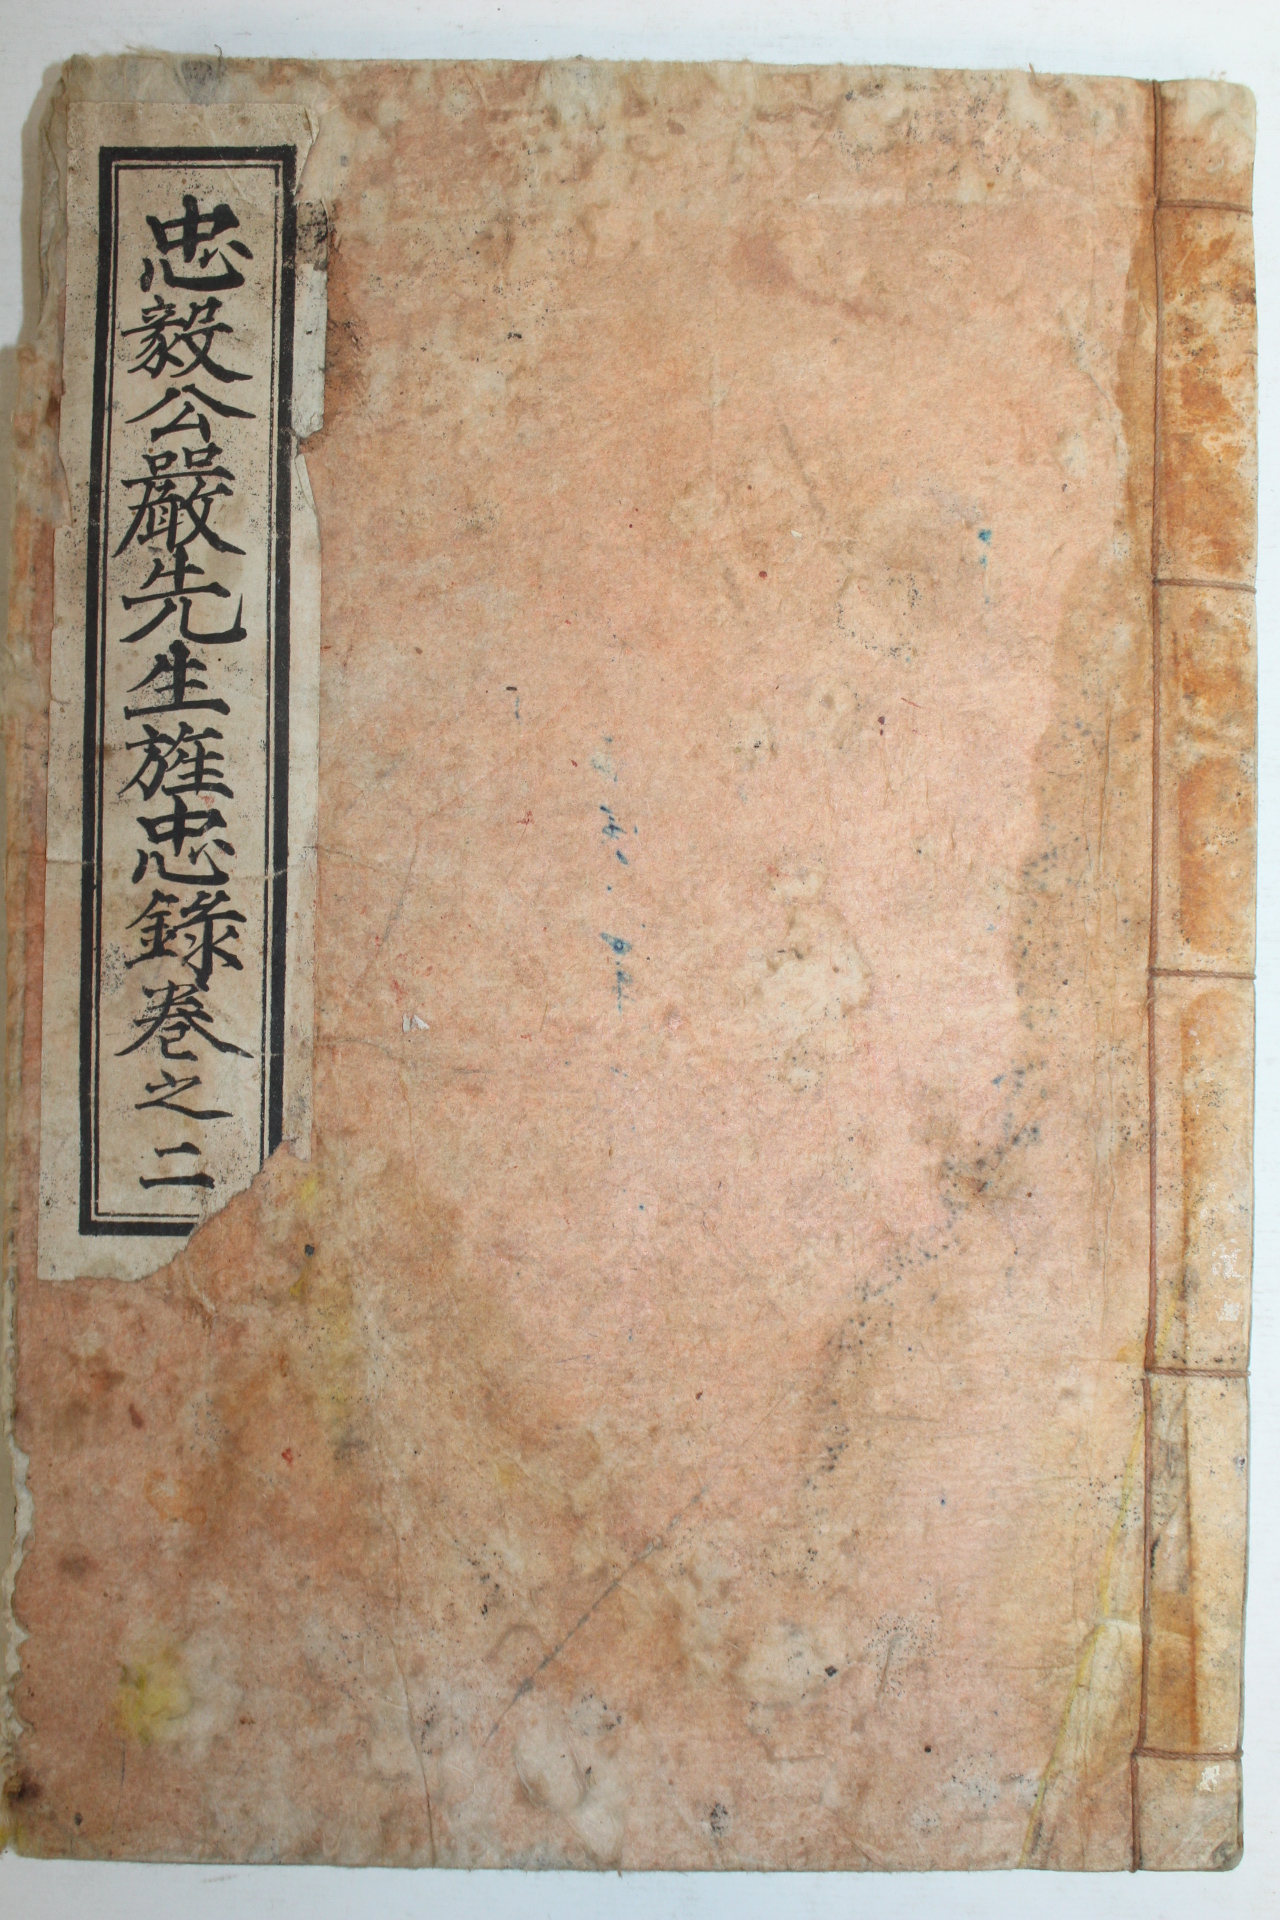 忠毅公嚴先生旌忠錄卷之二